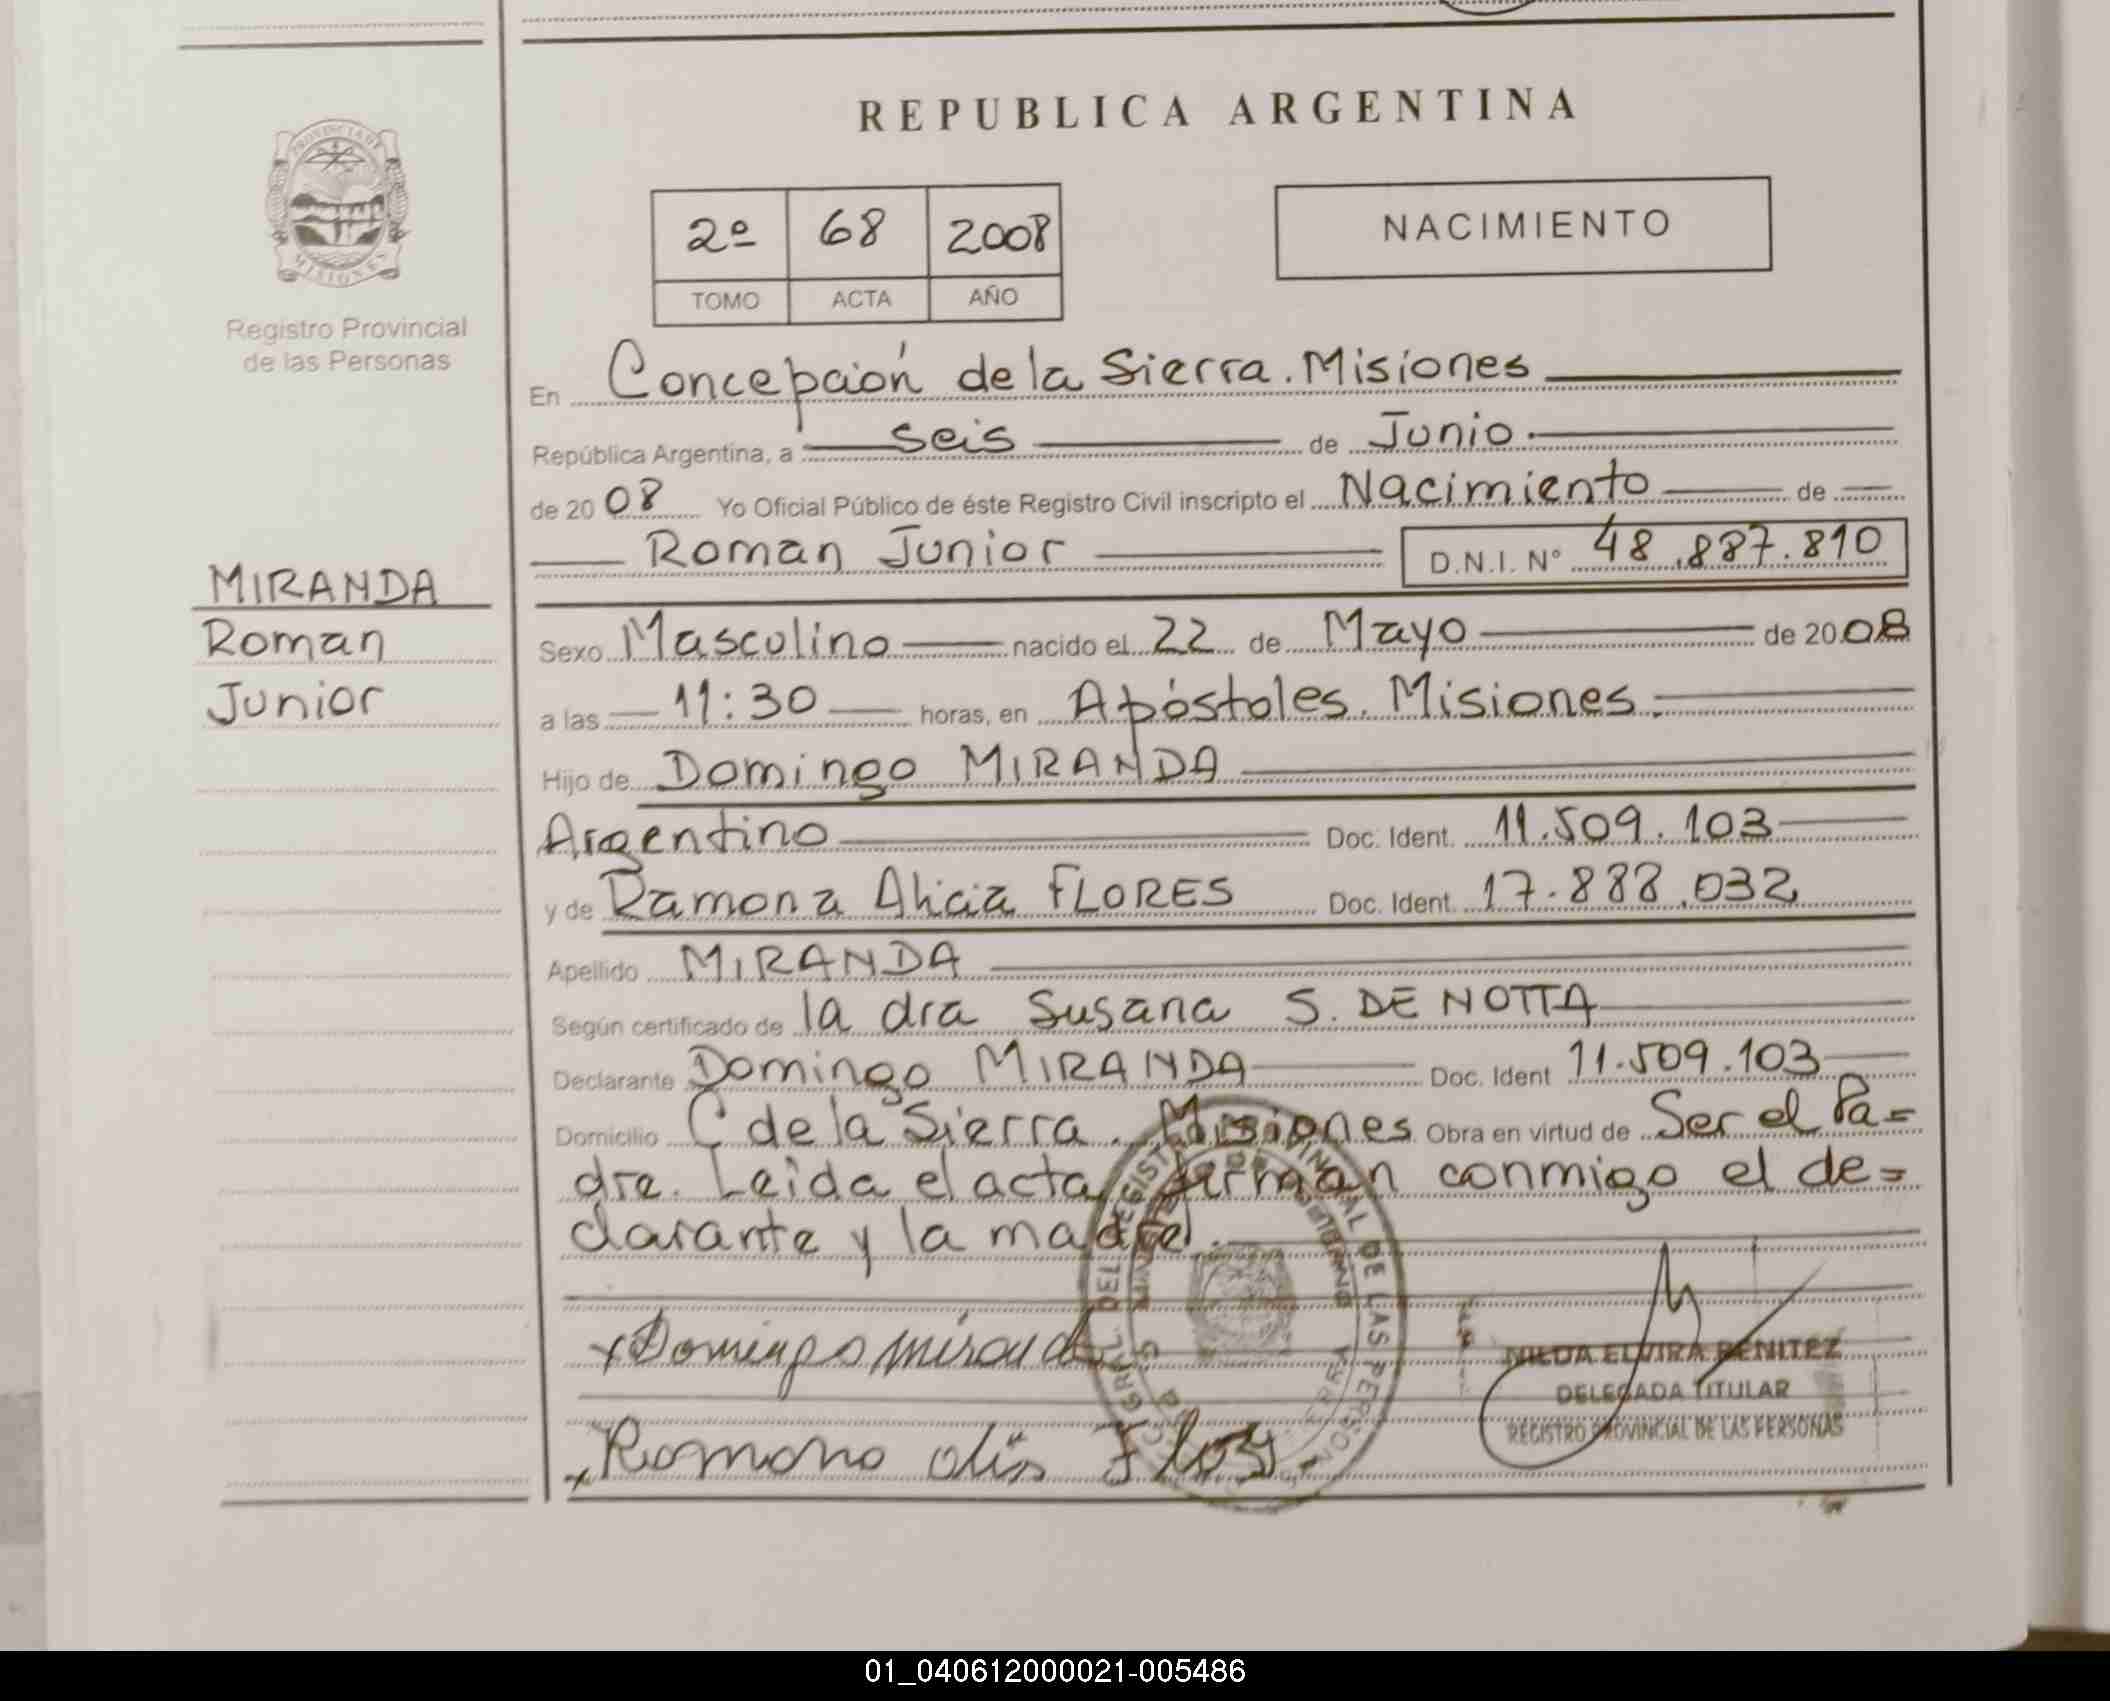 REPUBLICA ARGENTINA
PROVINCIA DE
MISIONES
Registro Provincial
de las Personas
2º 68 2008
TOMO ACTA AÑO
NACIMIENTO
En Concepción de la Sierra. Misiones
República Argentina, a seis de Junio
de 2008 Yo Oficial Público de éste Registro Civil inscripto el Nacimiento de
Roman Junior D.N.I. Nº 48.887.810
MIRANDA
Roman
Junior
Sexo Masculino nacido el 22 de Mayo de 2008
a las 11:30 horas, en Apóstoles. Misiones.
Hijo de Domingo MIRANDA
Argentino Doc. Ident. 11.509.103
y de Ramona Alicia FLORES Doc. Ident. 17.888.032
Apellido MIRANDA
Según certificado de la dra Susana S. DE NOTTA
Declarante Domingo MIRANDA Doc. Ident 11.509.103
Domicilio C de la Sierra. Misiones Obra en virtud de Ser el Pa=
dre. Leida el acta, firman conmigo el de=
clarante y la madre.
x Domingo miranda
x Romona
NILDA ELVIRA BENITEZ
DELEGADA TITULAR
REGISTRO PROVINCIAL DE LAS PERSONAS
01_040612000021-005486